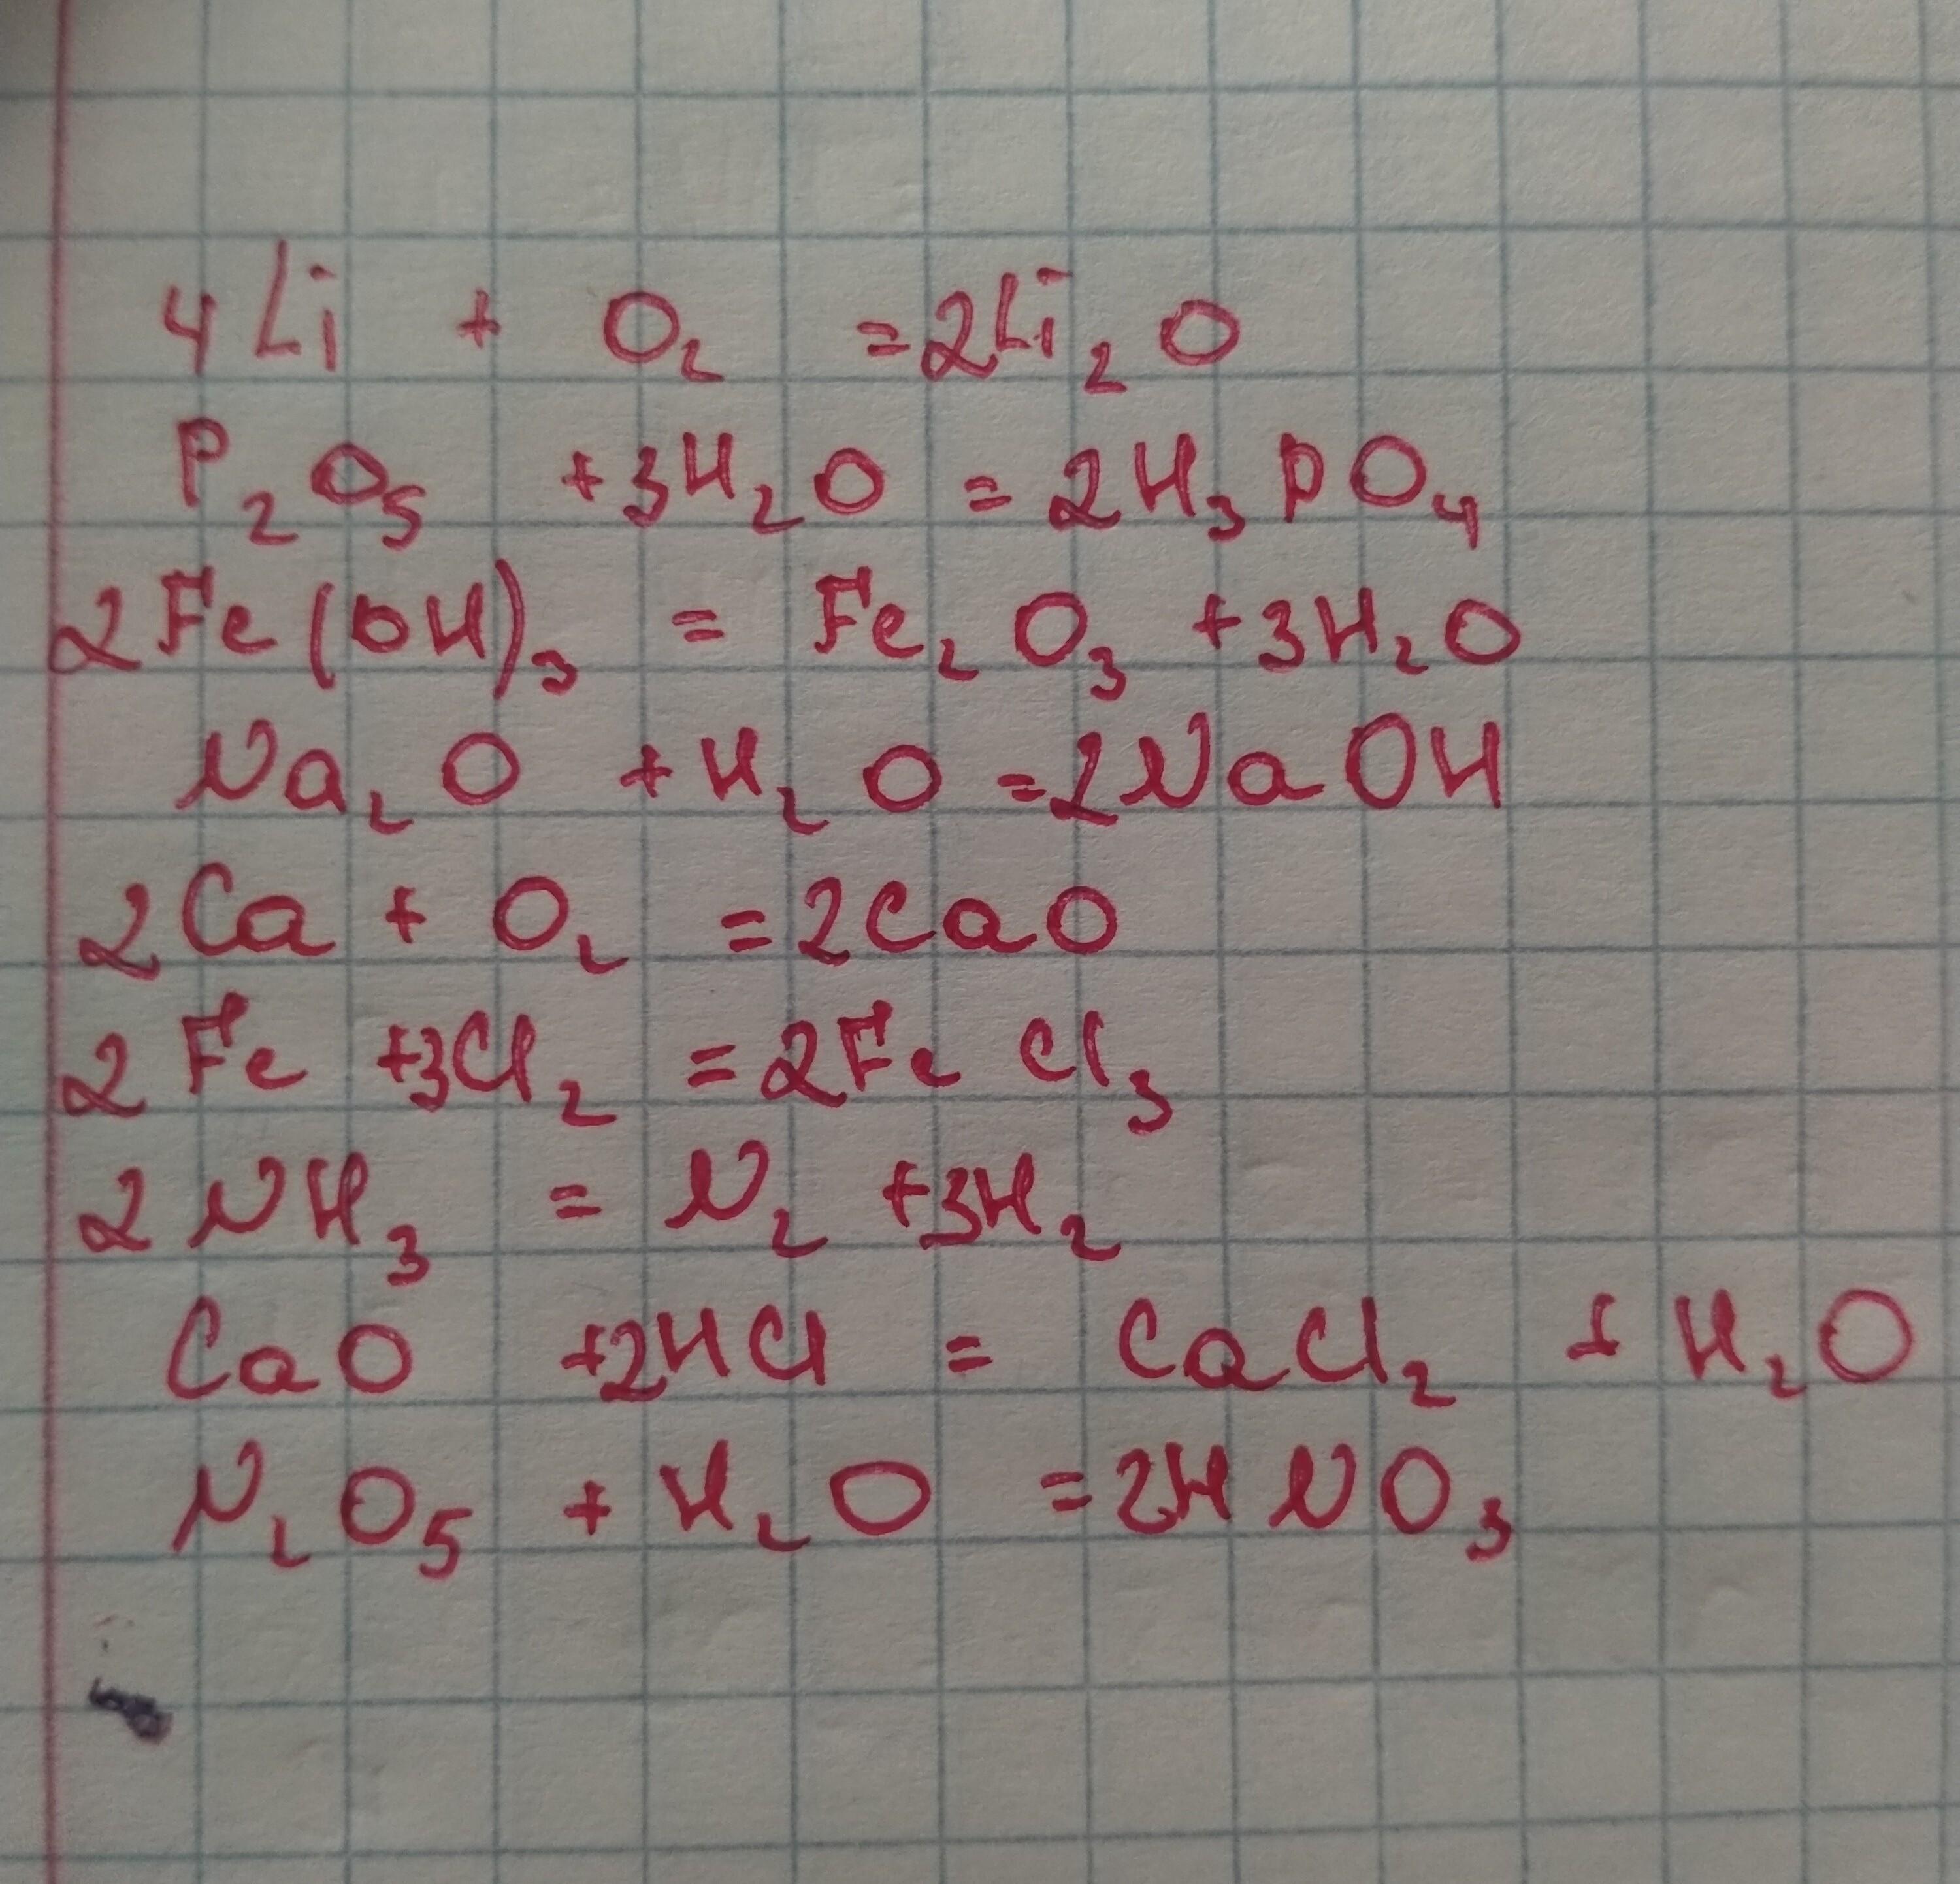 4Li + O₂ = 2Li₂O
P₂O₅ + 3H₂O = 2H₃PO₄
2Fe(OH)₃ = Fe₂O₃ + 3H₂O
Na₂O + H₂O = 2NaOH
2Ca + O₂ = 2CaO
2Fe + 3Cl₂ = 2FeCl₃
2NH₃ = N₂ + 3H₂
CaO + 2HCl = CaCl₂ + H₂O
N₂O₅ + H₂O = 2HNO₃